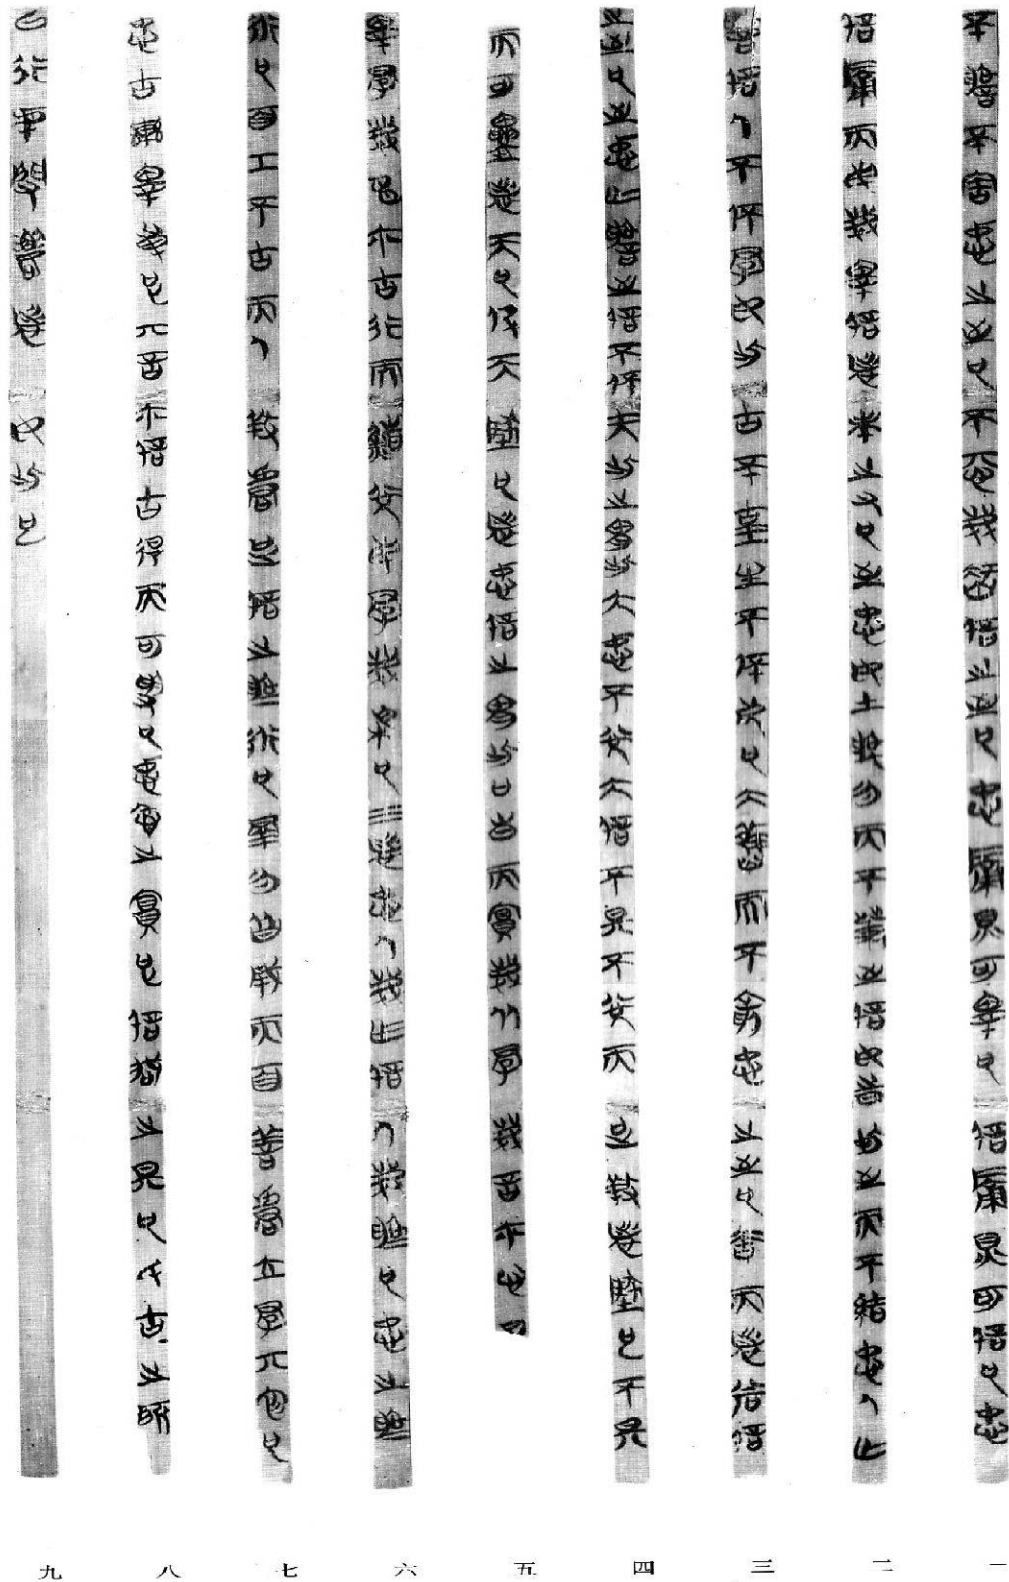 不譌不匋忠之至也不欺弗知信之至也忠積則可親也信積則可信也忠
信積而民弗親信者未之有也至忠如土化物而不伐至信如時畢至而不結忠人亡
譌信人不倍君子如此古不皇生不倍死也大久而不渝忠之至也匋而者尚信
之至也至忠亡譌至信不倍夫此之謂此大忠不兌大信不期不兌而足養者地也不期
而可要者天也配天地也者忠信之謂此口惠而實弗從君子弗言爾心
親君子弗申爾古行而爭兌民君子弗由也三者忠人弗作信人弗為也忠之為
道也百工不古而人養皆足信之為道也群物皆成而百善皆立君子其施也
忠古蠻親附也其言爾信古亶而可受也忠仁之實也信義之期也氏古古之所
以行乎蠻貉者如此也
一 二 三 四 五 六 七 八 九